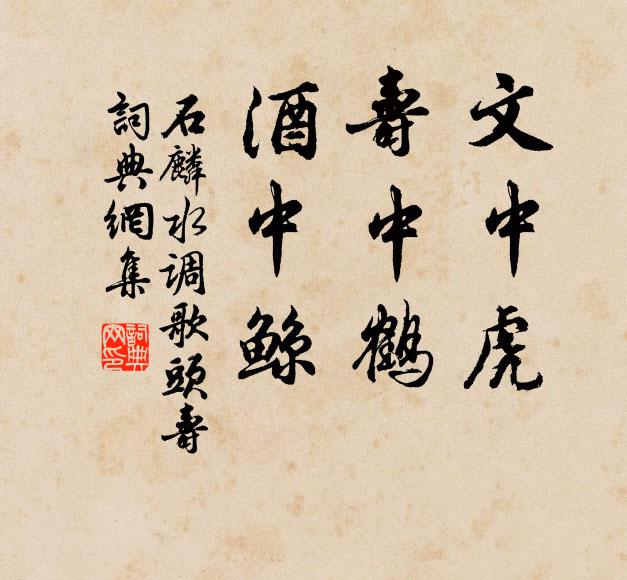 文中虎
壽中鶴
酒中鲸
石麟水调歌頭壽
詞典網集
詞典
网印